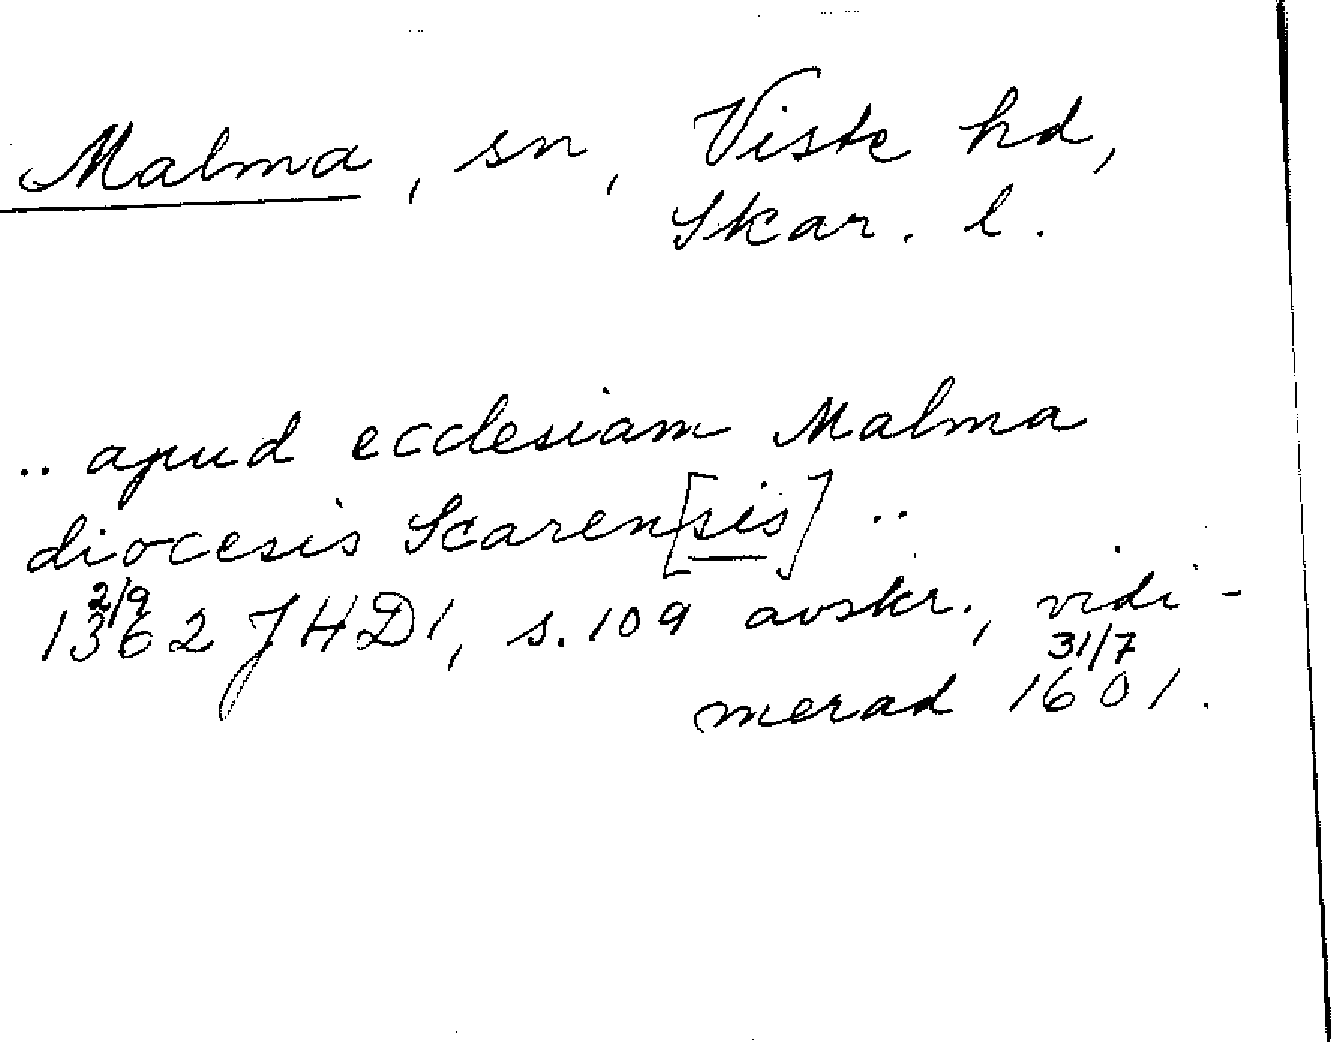 Malma, sn, Viste hd,
Skar. l.
.. apud ecclesiam Malma
diocesis Scaren[sis] ..
2/9
1362 JHD1, s. 109 avskr., vidi-
31/7
merad 1601.